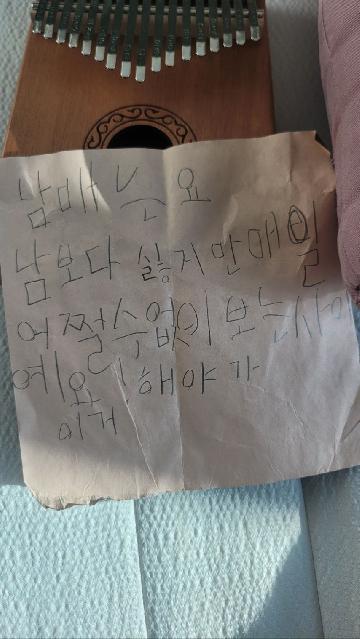 남매는요
남보다 싫지만 매일
어쩔수없이 보는사이
예요! 해야가
이거